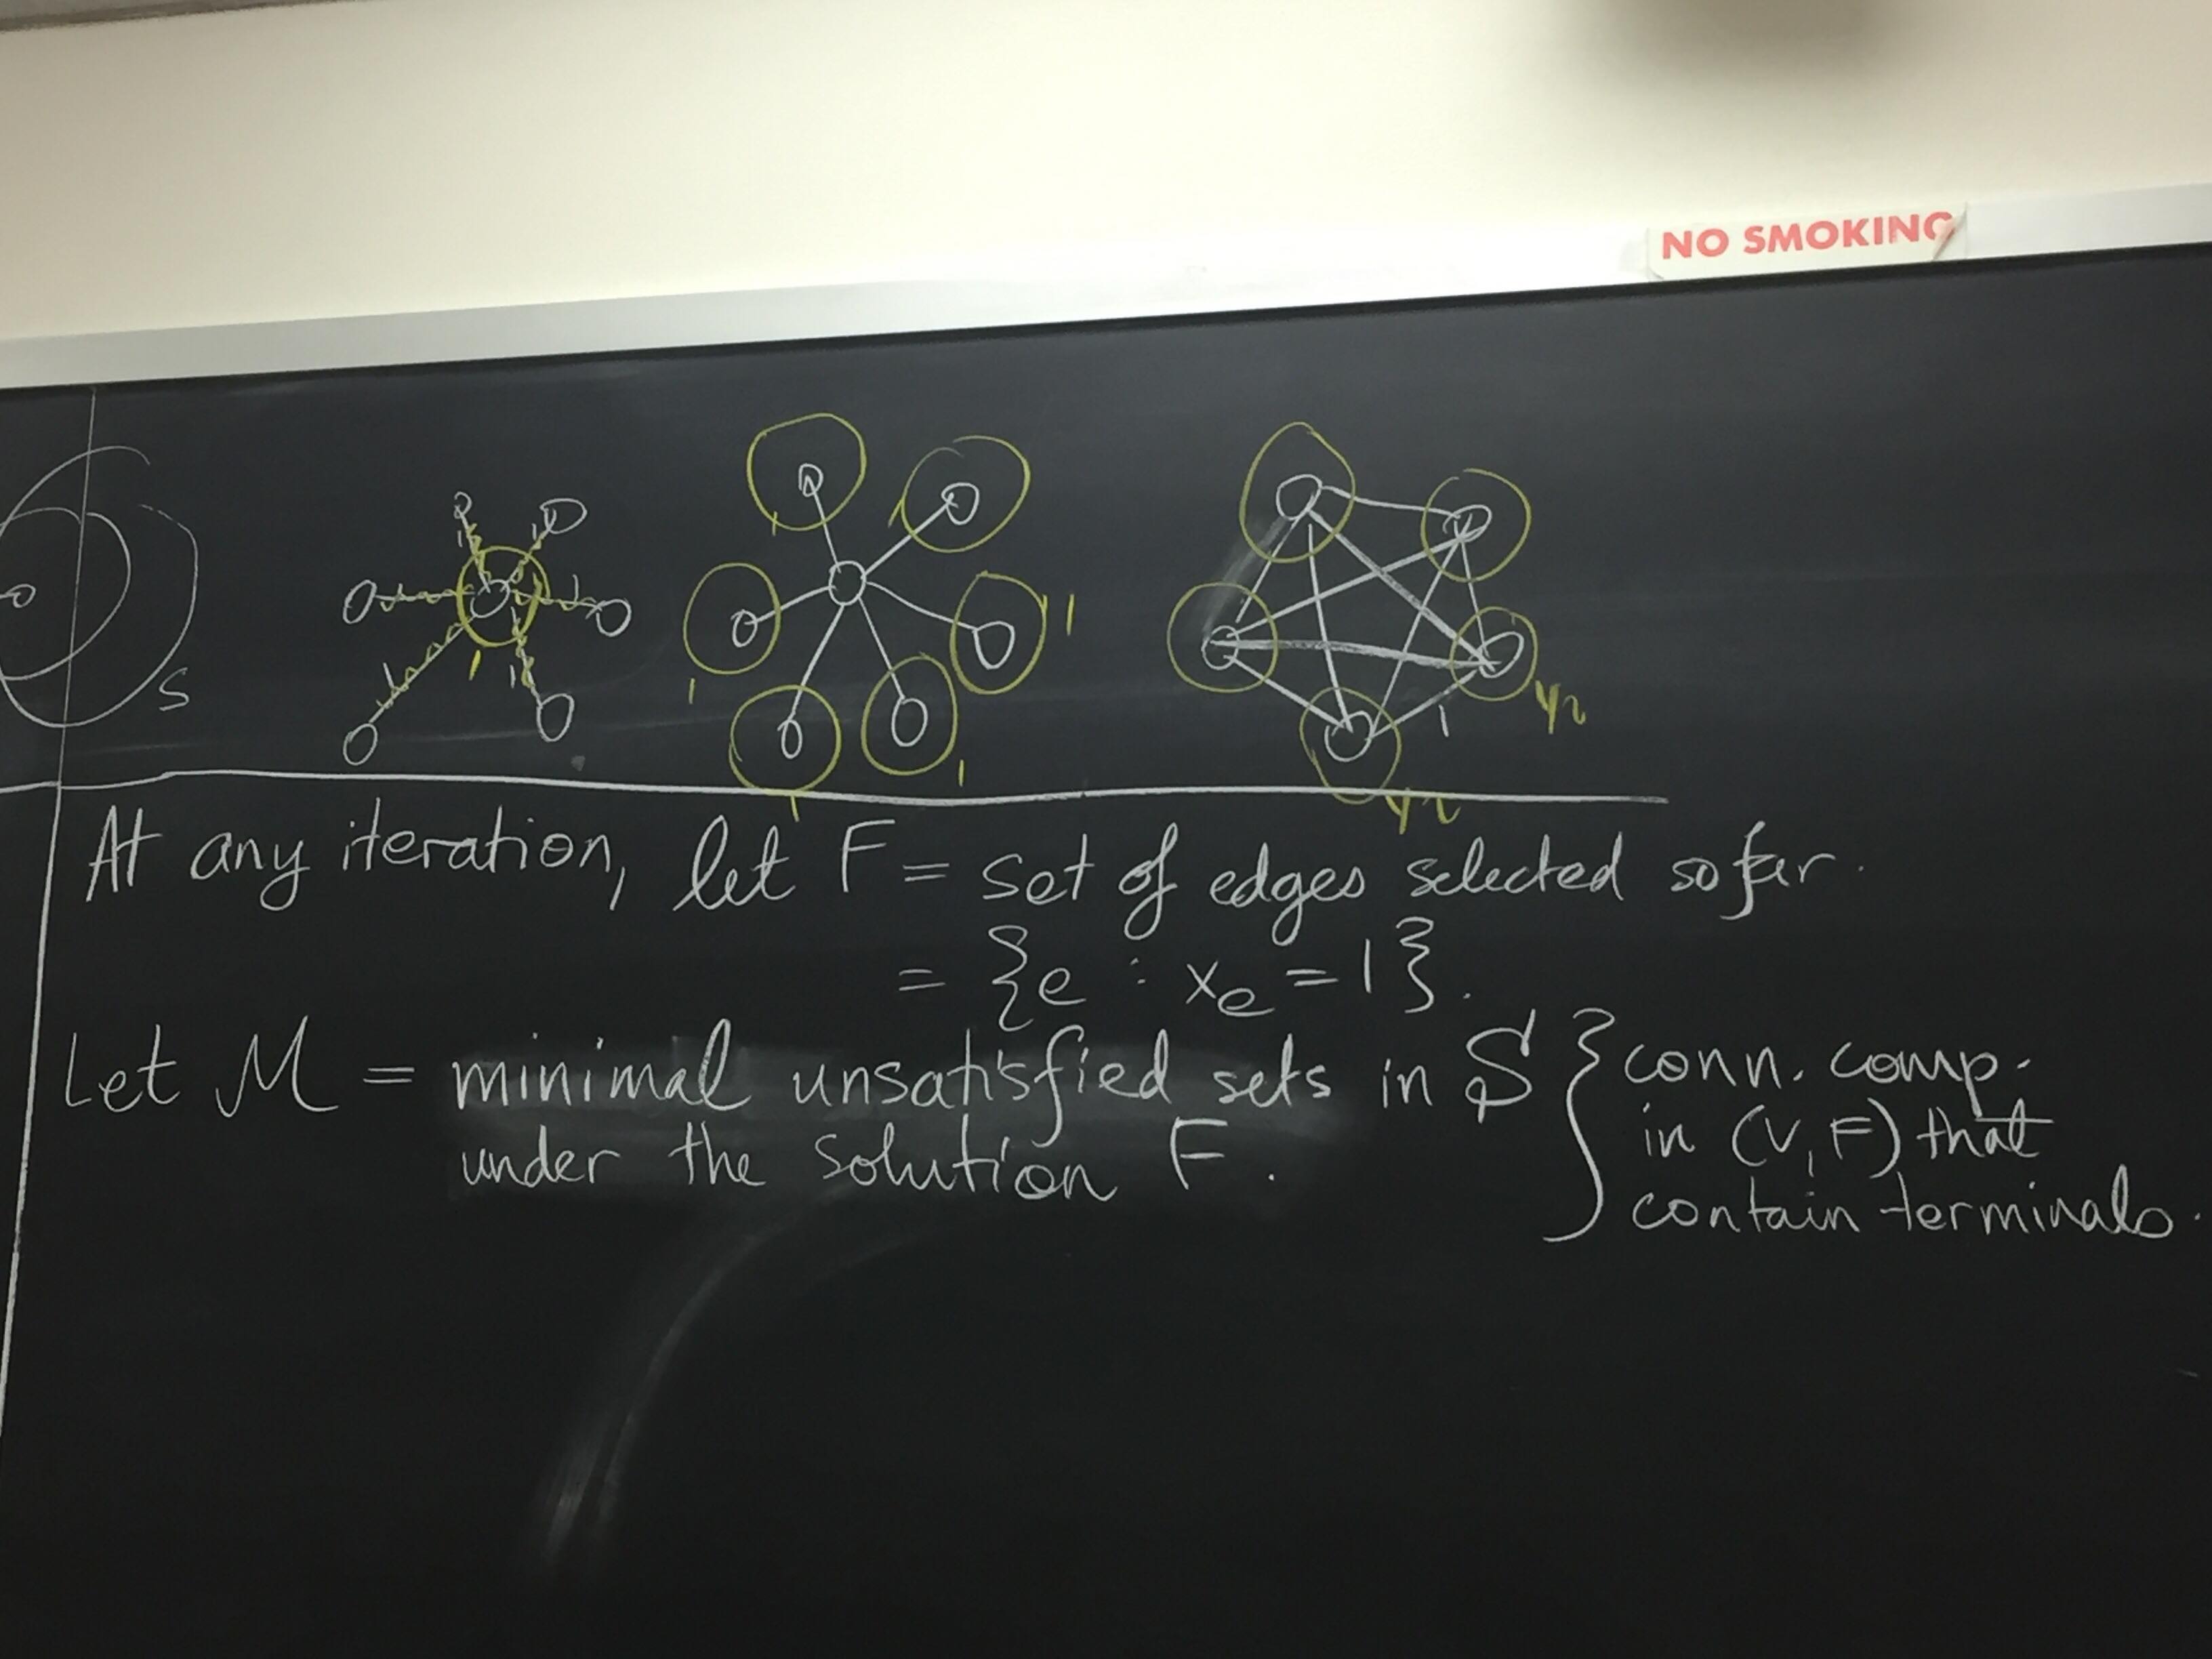 NO SMOKING
S
1 1 1 1 1 1
1 1 1 1 1
1 1/2
1/2
At any iteration, let F = set of edges selected so far.
= {e : xe = 1}.
Let M = minimal unsatisfied sets in S } conn. comp.
under the solution F. in (V, F) that
contain terminals.